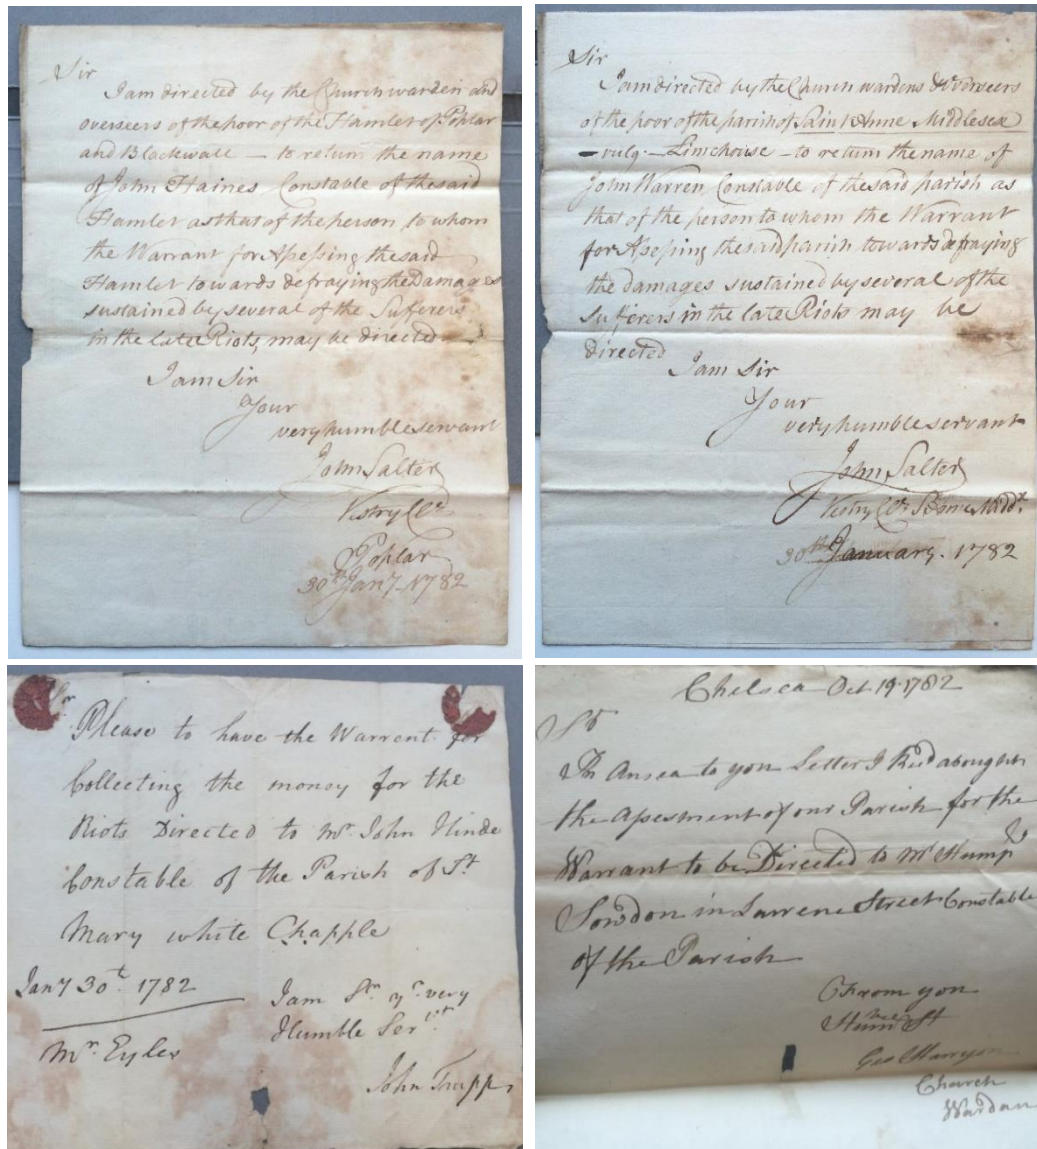 Sir
I am directed by the Churchwarden and
overseers of the poor of the Hamlet of Poplar
and Blackwall — to return the name
of John Haines Constable of the said
Hamlet as that of the person to whom
the Warrant for Assessing the said
Hamlet towards defraying the Damages
sustained by several of the Sufferers
in the late Riots, may be directed
I am Sir
Your
very humble servant
John Salter
Vestry Clk
Poplar
30th Jany 1782
Sir
I am directed by the Church wardens & Overseers
of the poor of the parish of Saint Anne Middlesex
— vulg — Limehouse — to return the name of
John Warren Constable of the said parish as
that of the person to whom the Warrant
for Assessing the said parish towards defraying
the damages sustained by several of the
Sufferers in the late Riots may be
directed
I am Sir
Your
very humble servant
John Salter
Vestry Clk St Anne Middx
30th January. 1782
Sr
Please to have the Warrent for
Collecting the money for the
Riots Directed to Mr John Hinde
Constable of the Parish of St
Mary white Chapple
Jany 30t. 1782
I am Sr yr very
Humble Servt
Mr Eyles
John Trapp
Chelsea Oct 19 1782
Sr
In Ansea to you Letter I Red abought
the Assesment of our Parish for the
Warrant to be Directed to Mr Hump
Sowdon in Lawrene Street Constable
of the Parish
From you
Humble St
Geo
Church
Wardan